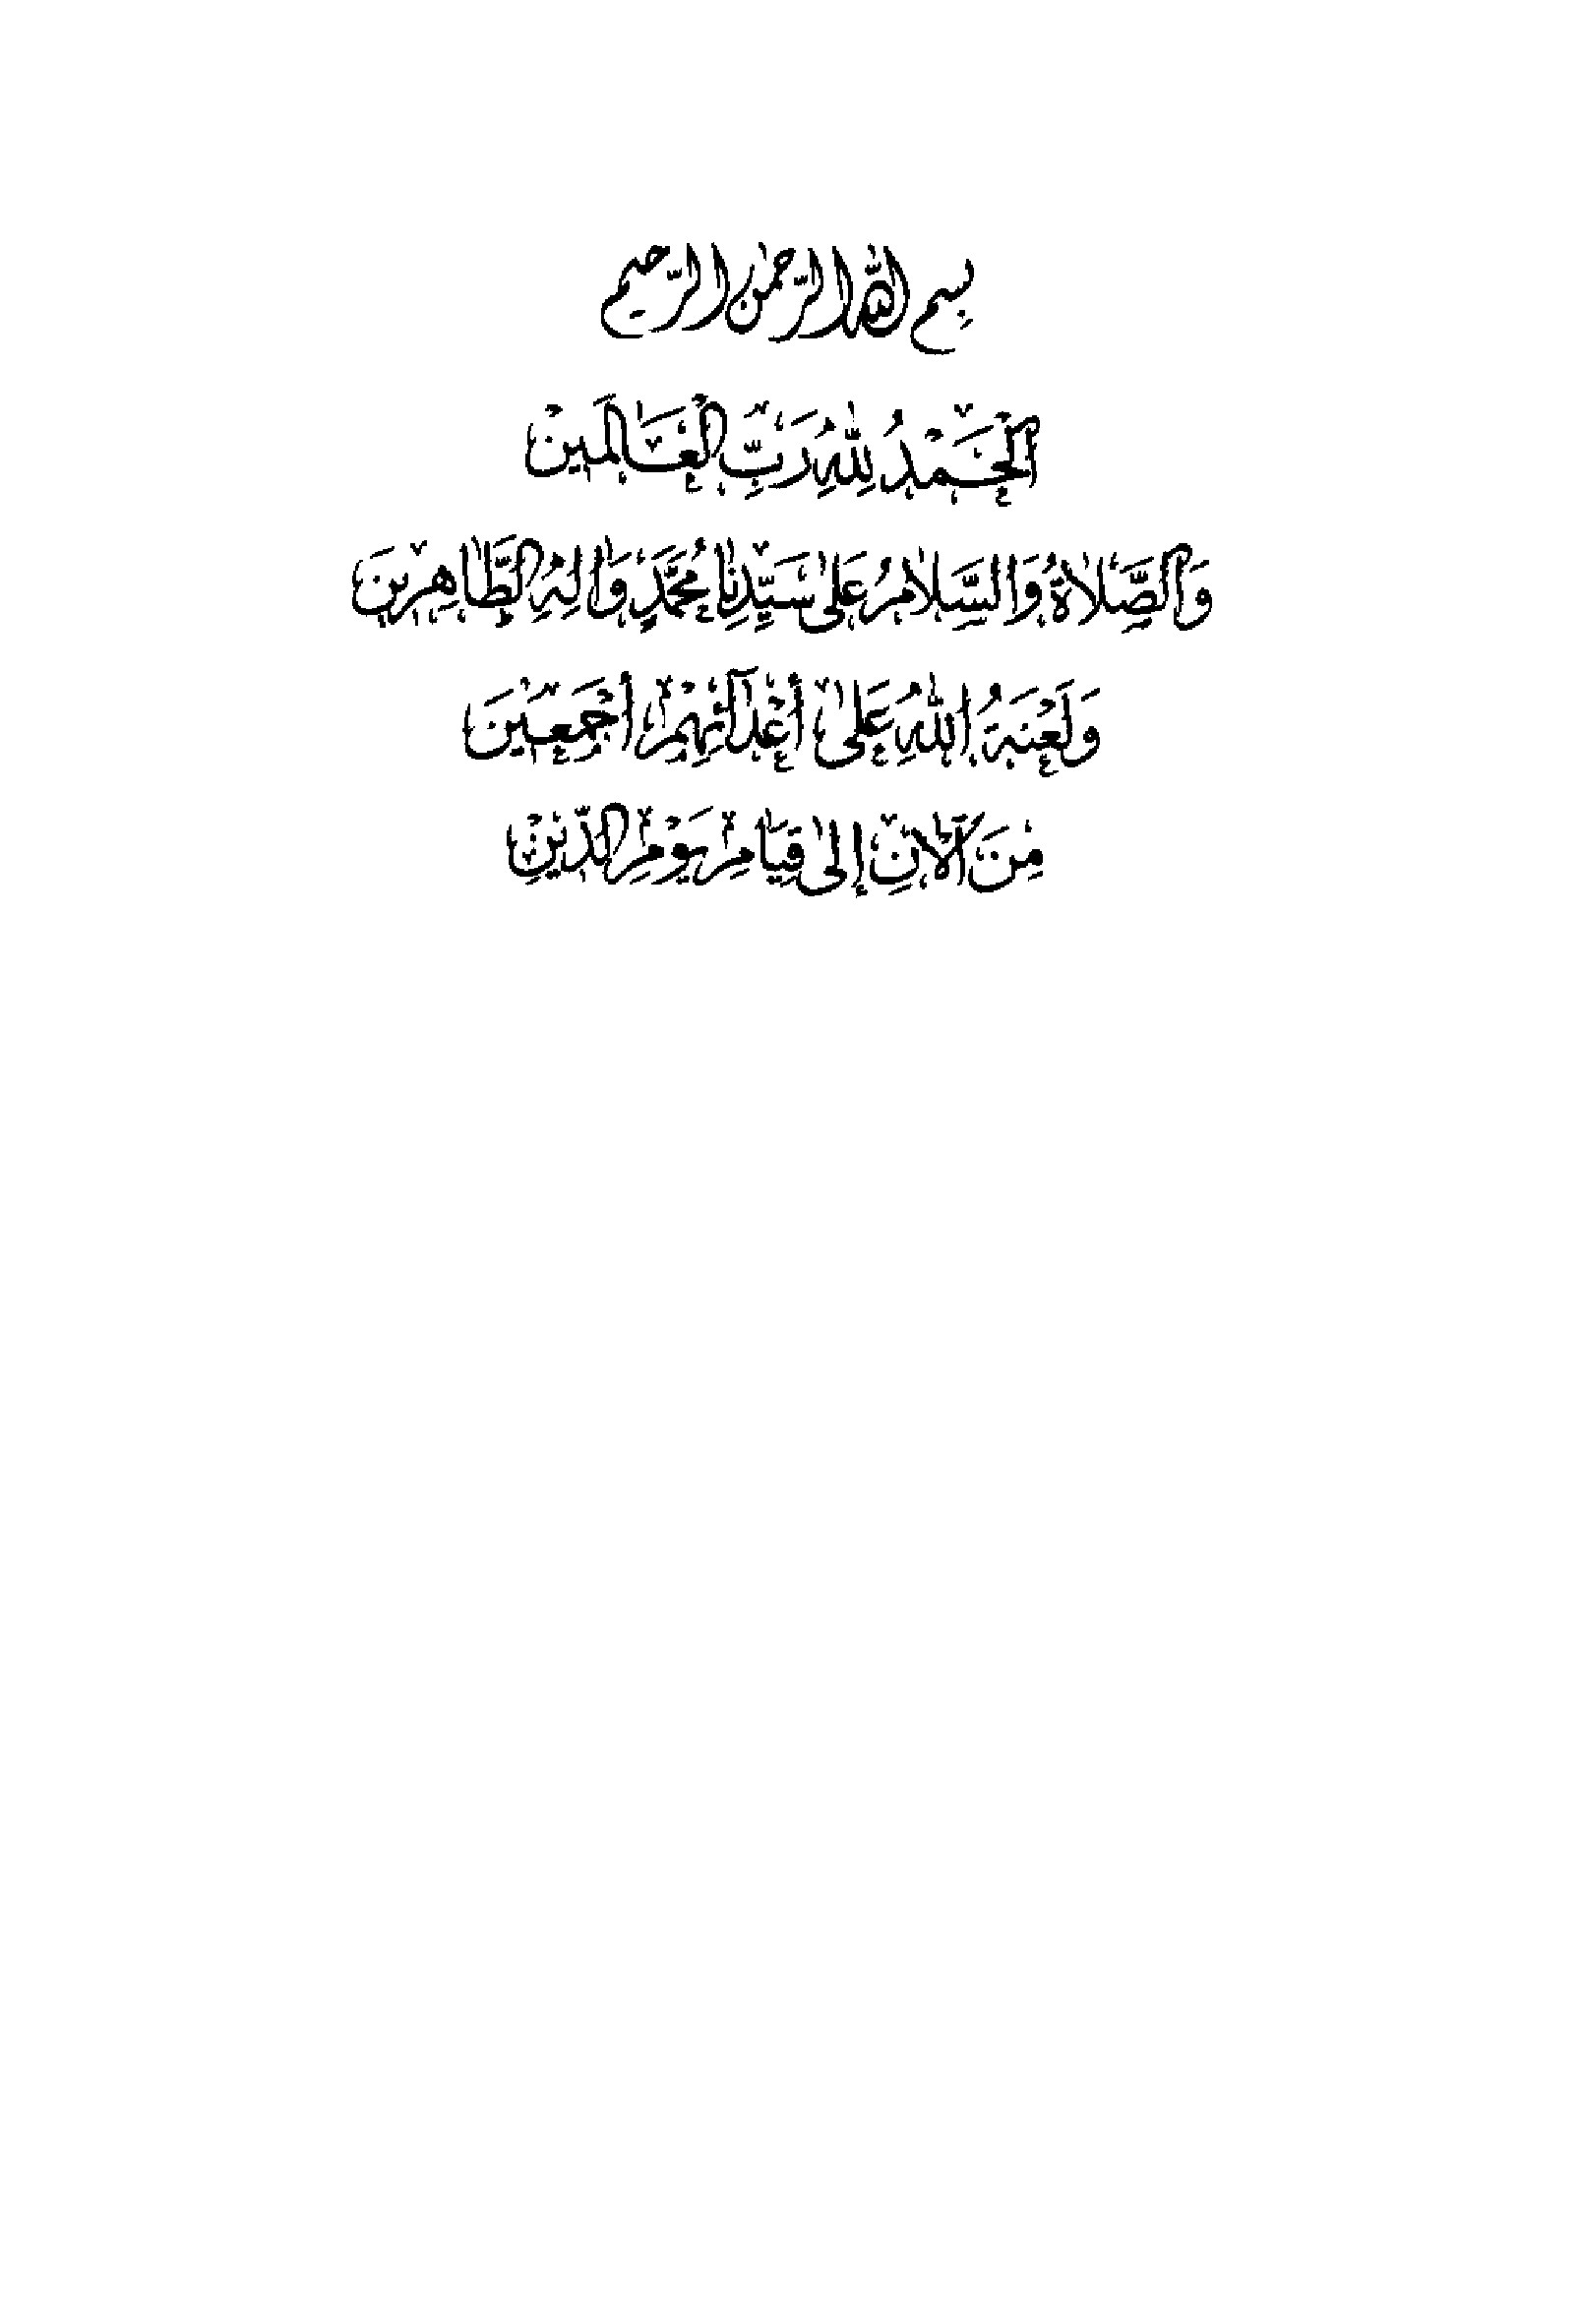 بِسْمِ اللهِ الرَّحْمٰنِ الرَّحِيمِ
اَلْحَمْدُ لِلّٰهِ رَبِّ الْعَالَمِينَ
وَالصَّلَاةُ وَالسَّلَامُ عَلىٰ سَيِّدِنَا مُحَمَّدٍ وَاٰلِهِ الطَّاهِرِينَ
وَلَعْنَةُ اللهِ عَلىٰ أَعْدَآئِهِمْ أَجْمَعِينَ
مِنَ الْآنِ إِلىٰ قِيَامِ يَوْمِ الدِّينِ